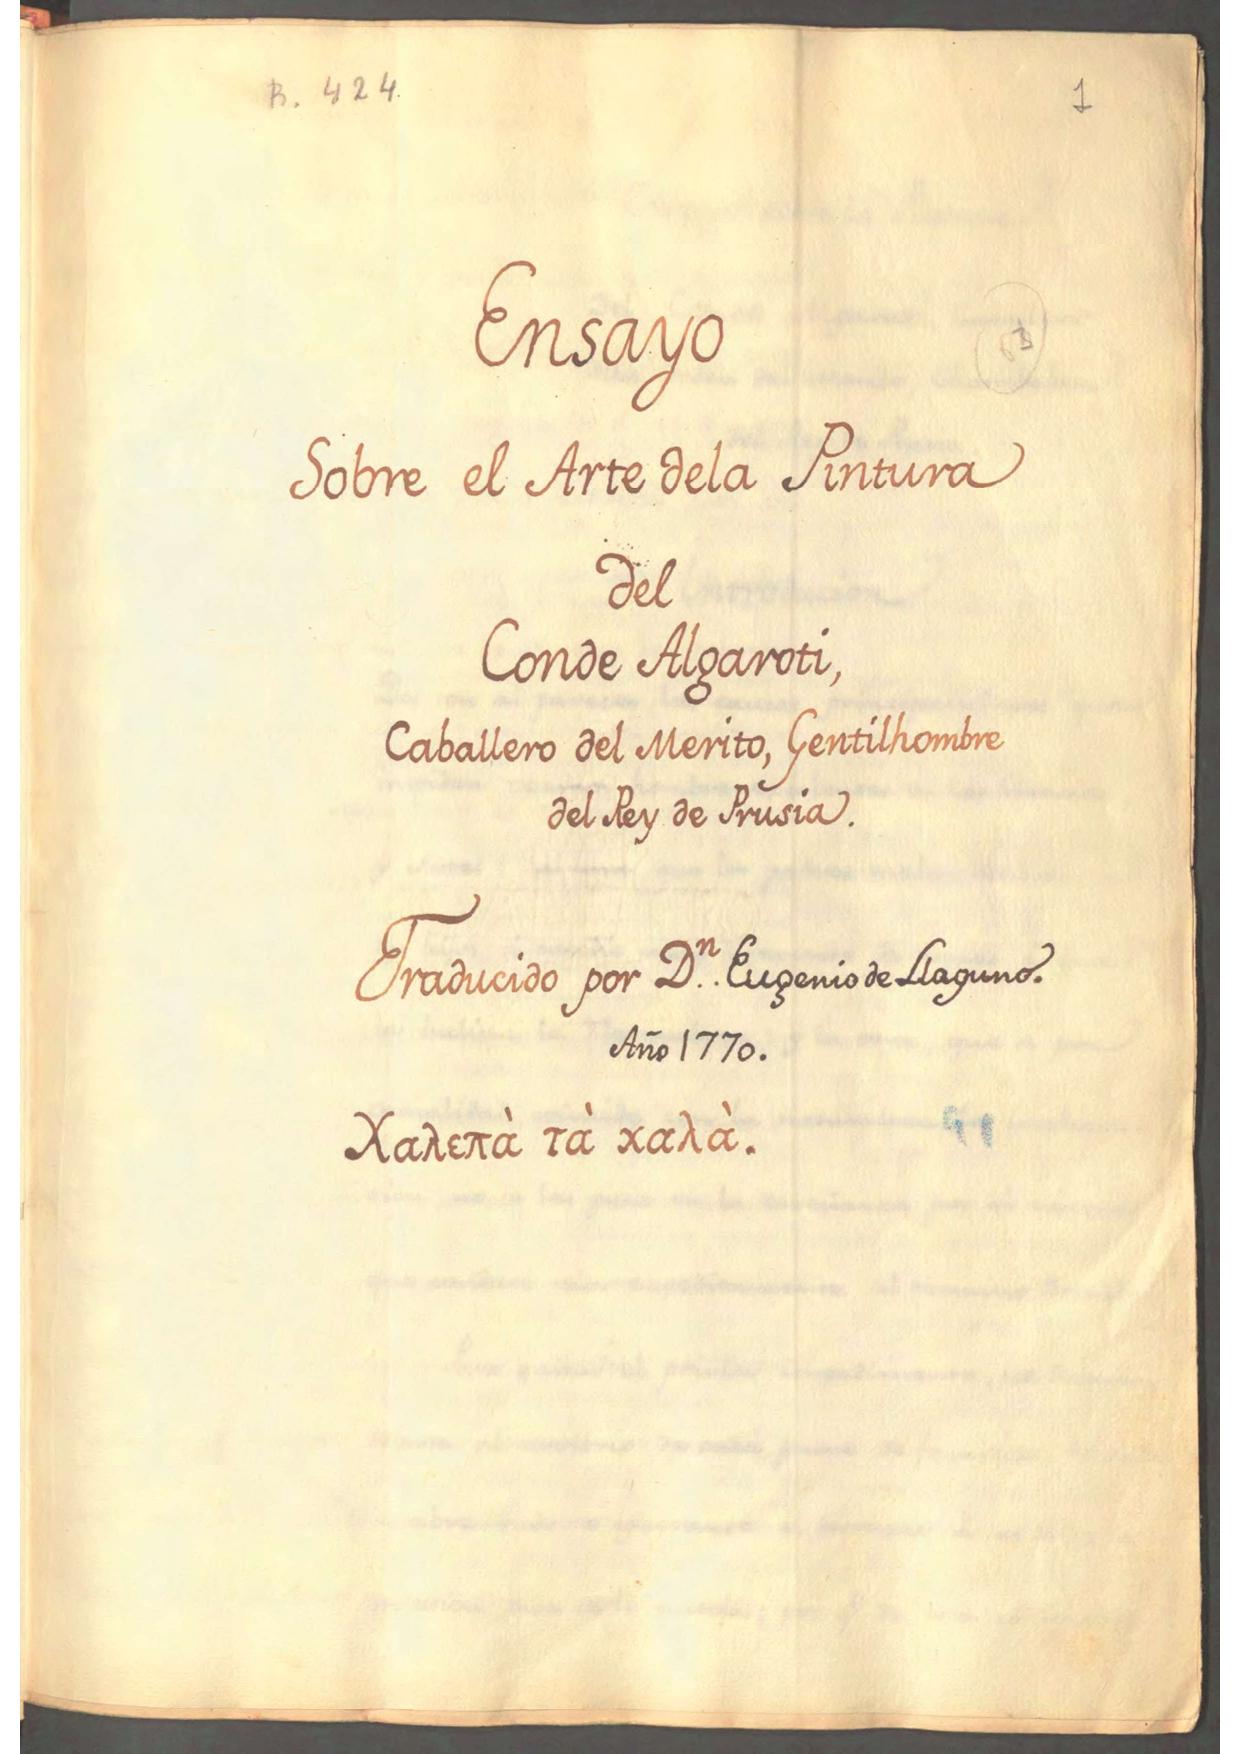 R. 424.
1
Ensayo
Sobre el Arte dela Pintura
del
Conde Algaroti,
Caballero del Merito, Gentilhombre
del Rey de Prusia.
Traducido por Dn. Eugenio de Llaguno.
Año 1770.
Χαλεπὰ τὰ χαλὰ.